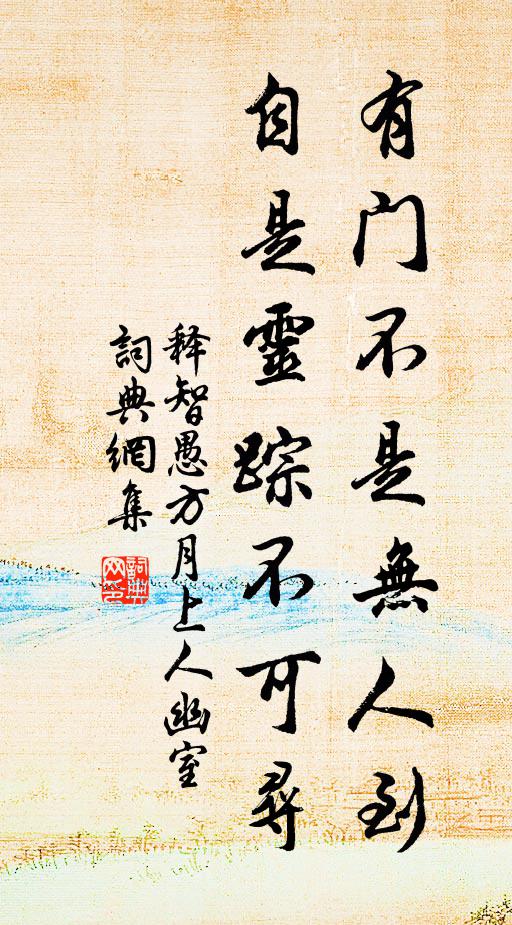 有门不是無人到
自是靈踪不可尋
释智愚方月上人幽室
詞典網集
詞典
网印